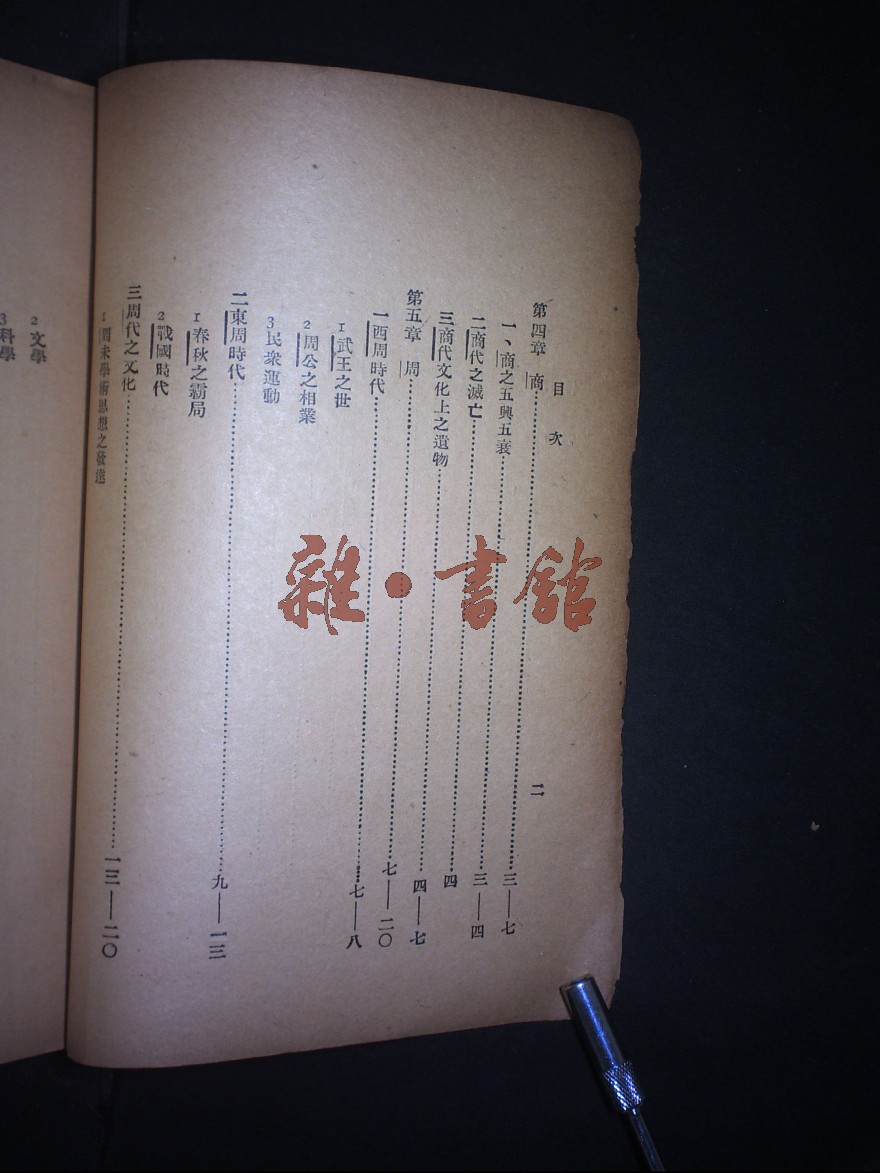 目次 二
第四章 商……三——七
一、商之五興五衰……三——四
二商代之滅亡……四
三商代文化上之遺物……四——七
第五章 周……七——二〇
一西周時代……七——八
1武王之世
2周公之相業
3民衆運動
二東周時代……九——一三
1春秋之霸局
2戰國時代
三周代之文化……一三——二〇
1周末學術思想之發達
2文學
3科學
雜•書館